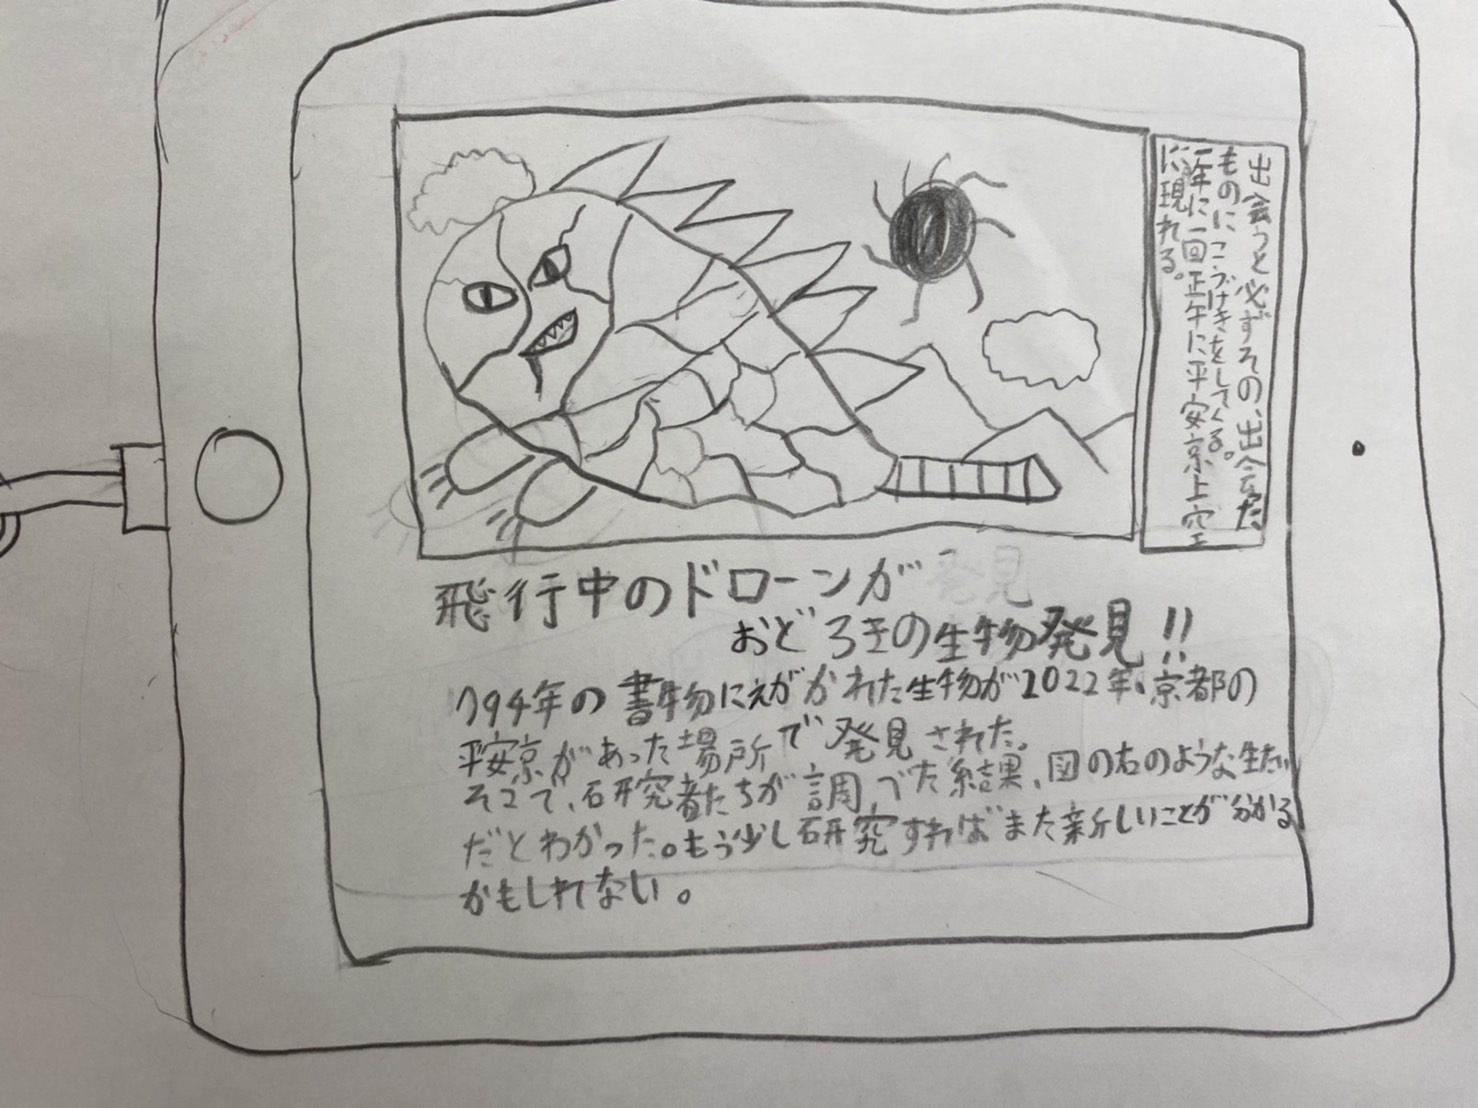 出会うと必ずその、出会た
ものにこうげきをしてくる。
一年に一回正午に平安京上空
に現れる。
飛行中のドローンが
おどろきの生物発見!!
794年の書物にえがかれた生物が2022年、京都の
平安京があった場所で発見された。
そこで、研究者たちが調べた結果、図の右のような生たい
だとわかった。もう少し研究すればまた新しいことが分かる
かもしれない。